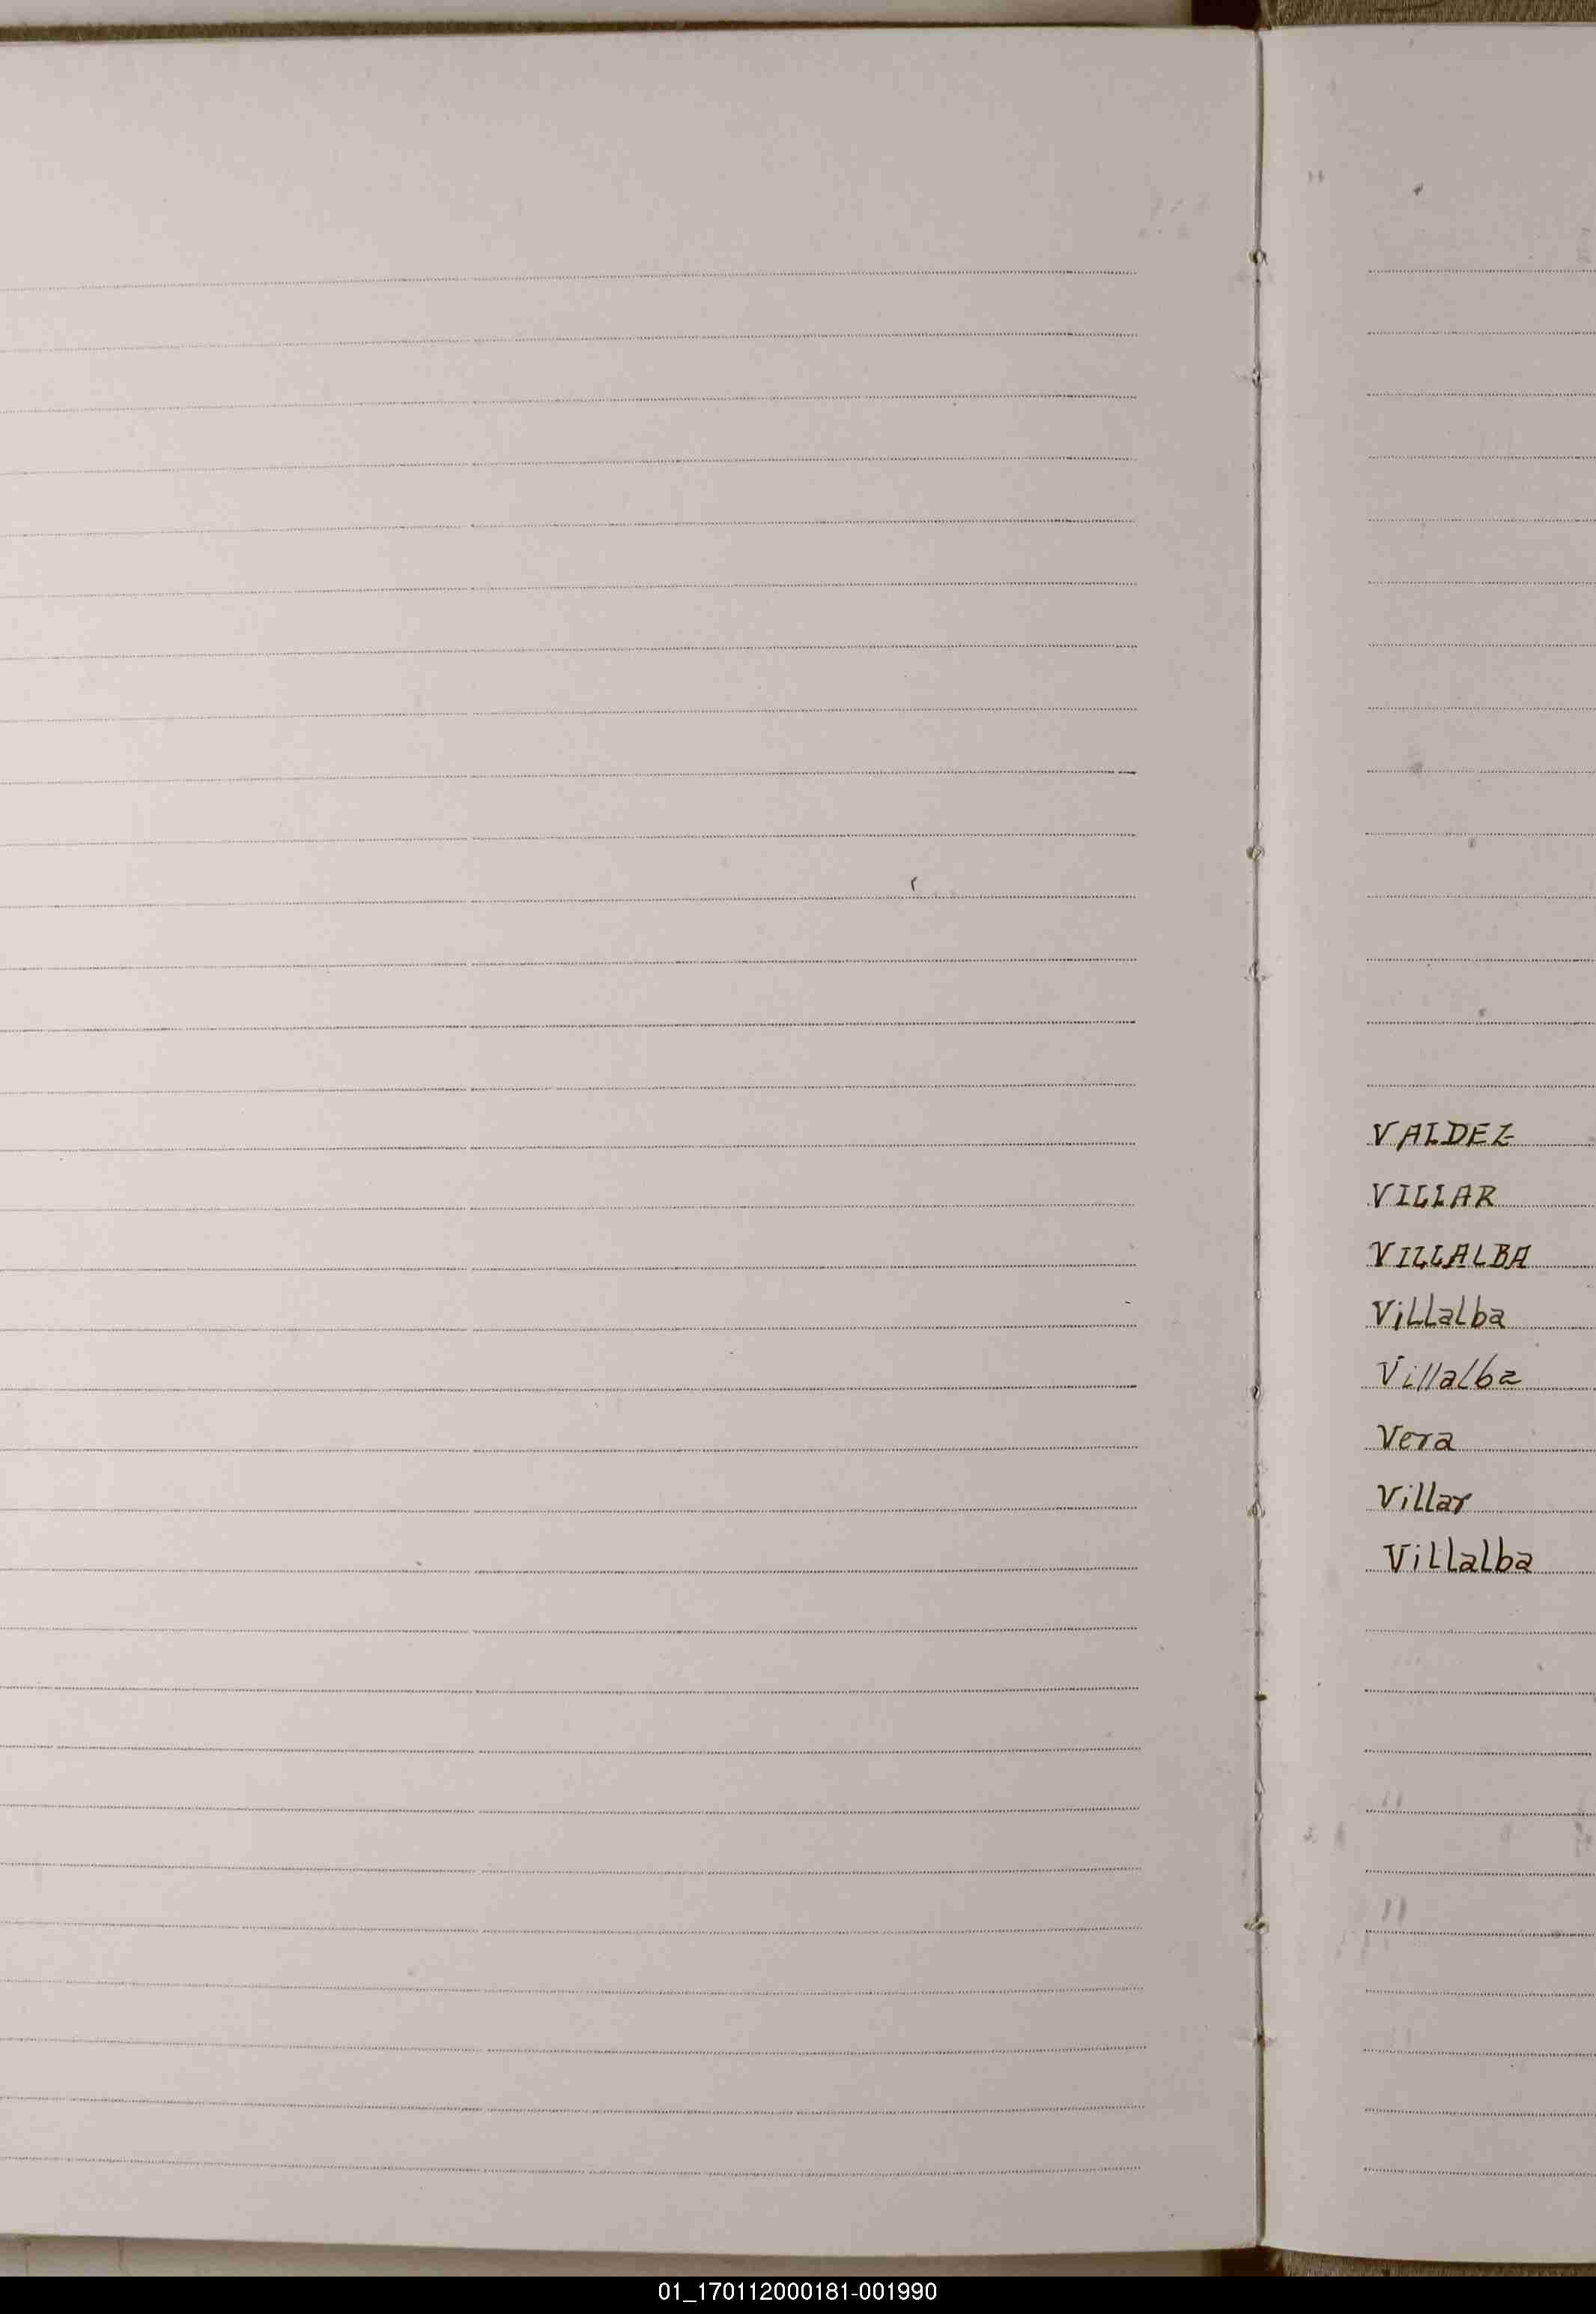 VALDEZ
VILLAR
VILLALBA
Villalba
Villalba
Vera
Villar
Villalba
01_170112000181-001990